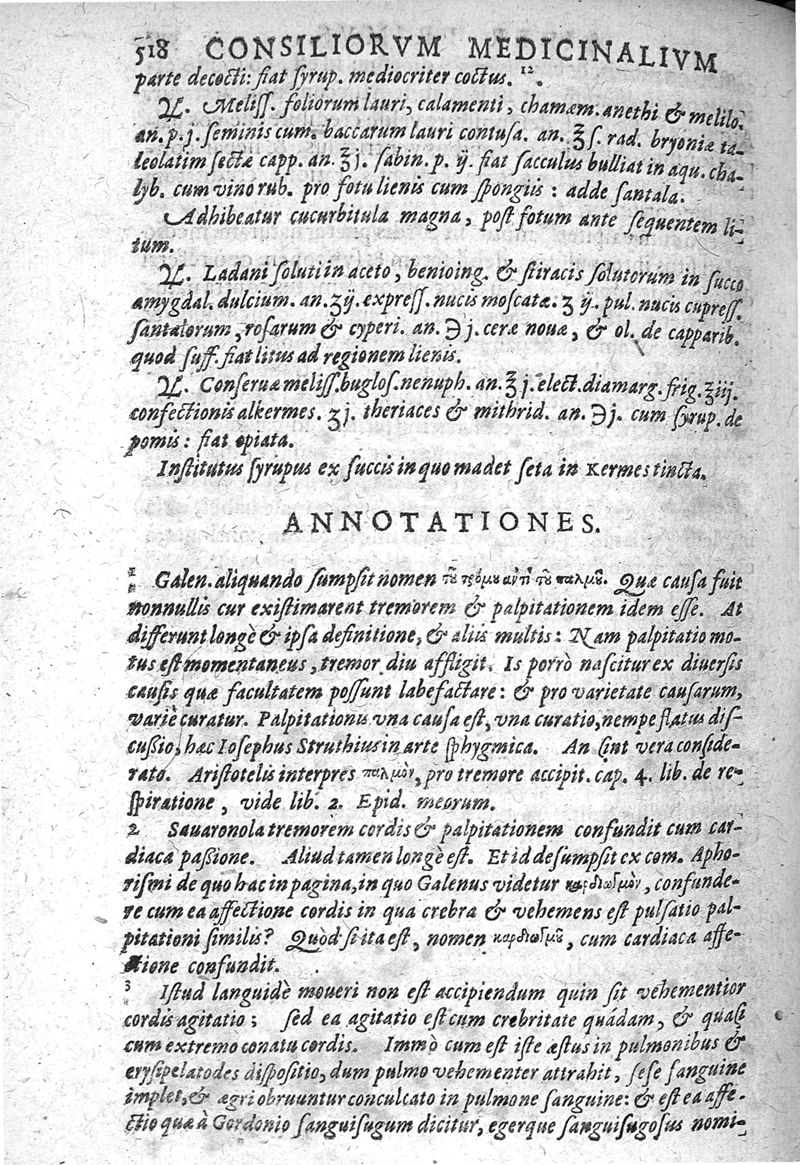 518 CONSILIORVM MEDICINALIVM
parte decocti: fiat syrup. mediocriter coctus. 12.
♃. Meliss. foliorum lauri, calamenti, chamæm. anethi & melilo.
an. p. j. seminis cum. baccarum lauri contusa. an. ℥ s. rad. bryoniæ ta-
leolatim sectæ capp. an. ℥ j. sabin. p. ij. fiat sacculus bulliat in aqu. cha-
lyb. cum vino rub. pro fotu lienis cum spongiis : adde santala.
Adhibeatur cucurbitula magna, post fotum ante sequentem li-
tum.
♃. Ladani soluti in aceto, benioing. & stiracis solutorum in succo
amygdal. dulcium. an. ʒ ij. express. nucis moscatæ. ʒ ij. pul. nucis cupress.
santalorum, rosarum & cyperi. an. ℈ j. ceræ nouæ, & ol. de capparib.
quod suff. fiat litus ad regionem lienis.
♃. Conseruæ meliss. buglos. nenuph. an. ℥ j. elect. diamarg. frig. ʒ iij.
confectionis alkermes. ʒ j. theriaces & mithrid. an. ℈ j. cum syrup. de
pomis : fiat opiata.
Institutus syrupus ex succis in quo madet seta in Kermes tincta.
ANNOTATIONES.
1 Galen. aliquando sumpsit nomen τοῦ τρόμου ἀντὶ τοῦ παλμοῦ. Quæ causa fuit
nonnullis cur existimarent tremorem & palpitationem idem esse. At
differunt longè & ipsa definitione, & aliis multis : Nam palpitatio mo-
tus est momentaneus, tremor diu affligit. Is porrò nascitur ex diuersis
causis quæ facultatem possunt labefactare : & pro varietate causarum,
variè curatur. Palpitationis vna causa est, vna curatio, nempe flatus dis-
cußio, hæc Iosephus Struthius in arte sphygmica. An sint vera conside-
rato. Aristotelis interpres παλμὸν, pro tremore accipit. cap. 4. lib. de re-
spiratione, vide lib. 2. Epid. meorum.
2 Sauaronola tremorem cordis & palpitationem confundit cum car-
diaca paßione. Aliud tamen longè est. Et id desumpsit ex com. Apho-
rismi de quo hac in pagina, in quo Galenus videtur καρδιωγμὸν, confunde-
re cum ea affectione cordis in qua crebra & vehemens est pulsatio pal-
pitationi similis? Quòd si ita est, nomen καρδιωγμοῦ, cum cardiaca affe-
ctione confundit.
3 Istud languidè moueri non est accipiendum quin sit vehementior
cordis agitatio ; sed ea agitatio est cum crebritate quádam, & quasi
cum extremo conatu cordis. Immò cum est iste æstus in pulmonibus &
erysipelatodes dispositio, dum pulmo vehementer attrahit, sese sanguine
implet, & ægri obruuntur conculcato in pulmone sanguine : & est ea affe-
ctio quæ à Gordonio sanguisugum dicitur, egerque sanguisugosus nomi-